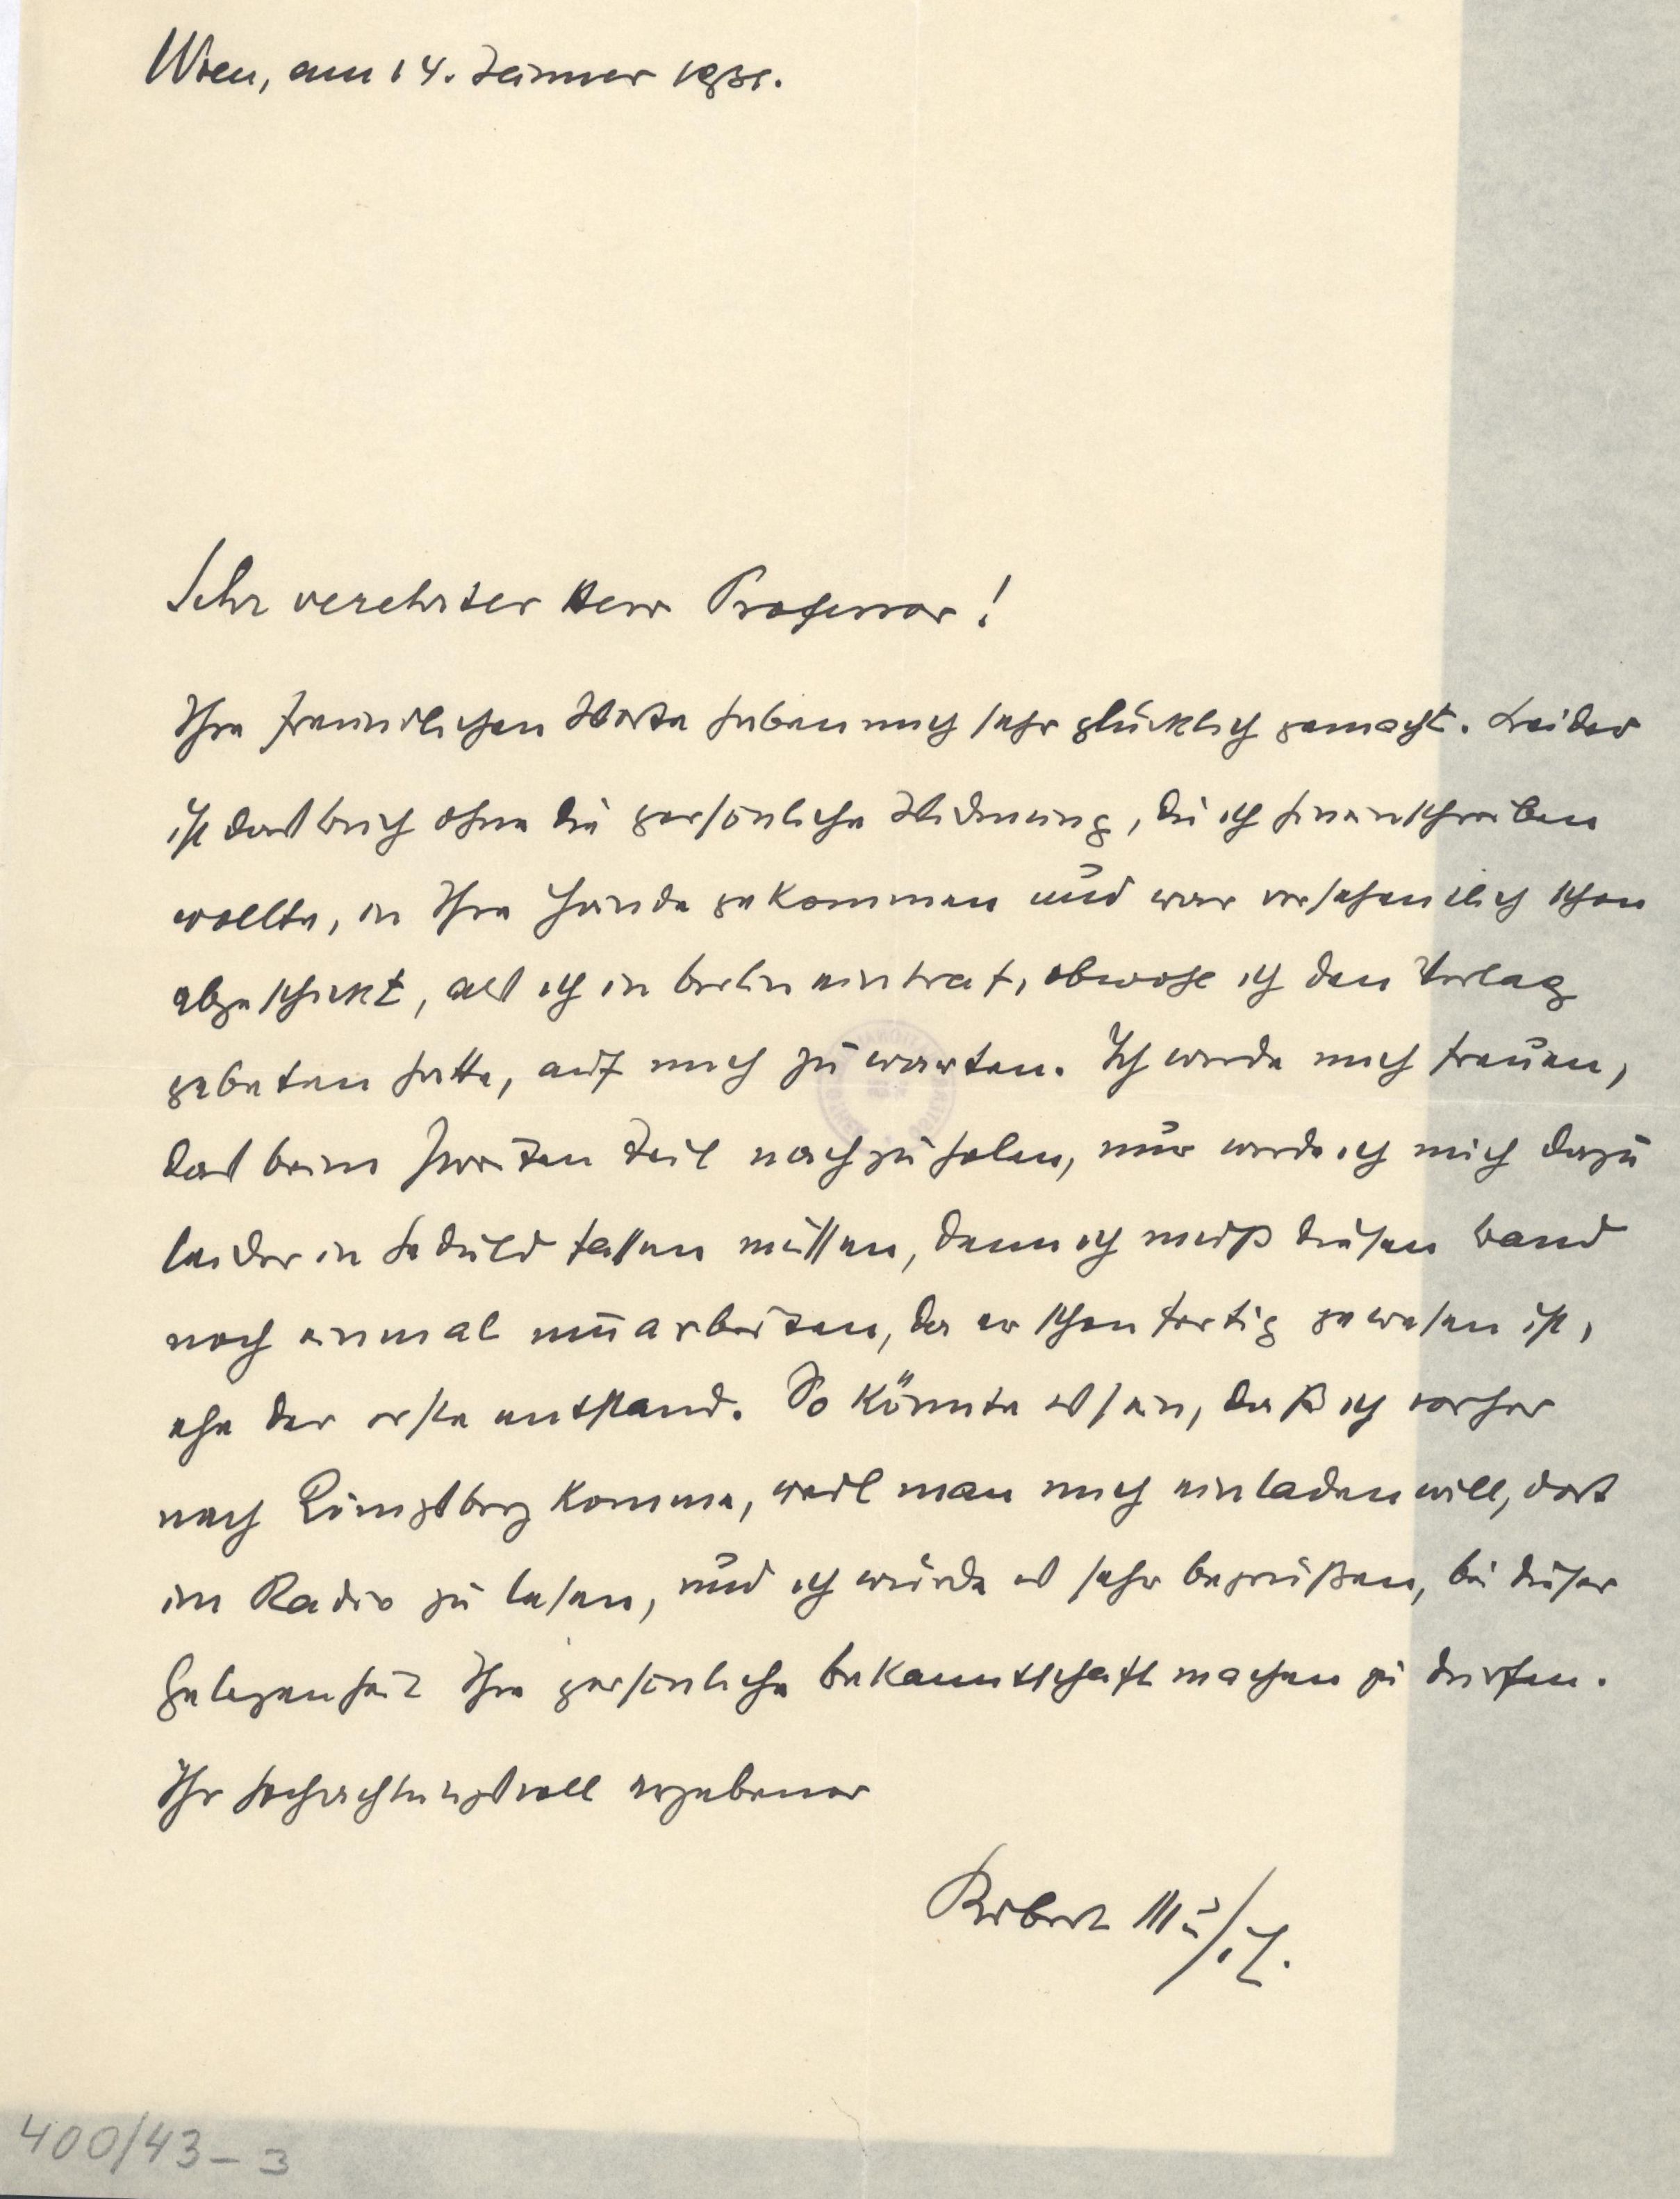 Wien, am 14. Jänner 1931.
Sehr verehrter Herr Professor!
Ihre freundlichen Worte haben mich sehr glücklich gemacht. Leider
ist das Buch ohne die persönliche Widmung, die ich hineinschreiben
wollte, in Ihre Hände gekommen und war versehentlich schon
abgeschickt, als ich in Berlin eintraf, obwohl ich den Verlag
gebeten hatte, auf mich zu warten. Ich werde mich freuen,
das beim zweiten Teil nachzuholen, nur werde ich mich dazu
leider in Geduld fassen müssen, denn ich muß diesen Band
noch einmal umarbeiten, da er schon fertig gewesen ist,
ehe der erste entstand. So könnte es sein, daß ich vorher
nach Königsberg komme, weil man mich einladen will, dort
im Radio zu lesen, und ich würde es sehr begrüßen, bei dieser
Gelegenheit Ihre persönliche Bekanntschaft machen zu dürfen.
Ihr hochachtungsvoll ergebener
Robert Musil.
400/43-3